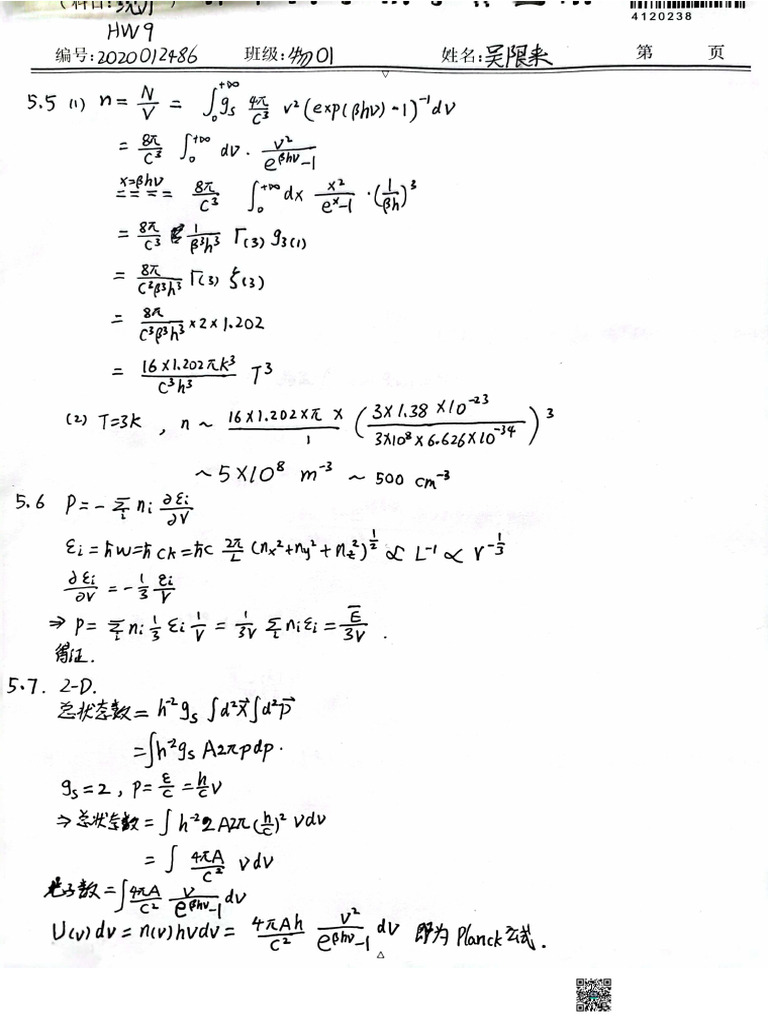 (科目:统力)
4120238
HW9
编号:2020012486 班级:物01 姓名:吴限来 第 页
5.5 (1) n = N/V = ∫₀^{+∞} g_s 4π/c³ ν²(exp(βhν)-1)⁻¹dν
= 8π/c³ ∫₀^{+∞} dν · ν²/(e^{βhν}-1)
x=βhν ==== 8π/c³ ∫₀^{+∞} dx x²/(e^x-1) · (1/βh)³
= 8π/c³ 1/(β³h³) Γ(3) g₃(1)
= 8π/(c³β³h³) Γ(3) ζ(3)
= 8π/(c³β³h³) × 2 × 1.202
= 16×1.202πk³/(c³h³) T³
(2) T=3K , n ~ (16×1.202×π×)/1 ((3×1.38×10⁻²³)/(3×10⁸×6.626×10⁻³⁴))³
~ 5×10⁸ m⁻³ ~ 500 cm⁻³
5.6 P = -Σᵢ nᵢ ∂εᵢ/∂V
εᵢ = ħw = ħck = ħc 2π/L (nx²+ny²+nz²)^{1/2} ∝ L⁻¹ ∝ V^{-1/3}
∂εᵢ/∂V = -1/3 εᵢ/V
⇒ P = Σᵢ nᵢ 1/3 εᵢ 1/V = 1/3V Σᵢ nᵢεᵢ = Ē/3V .
得证.
5.7. 2-D.
总状态数 = h⁻²g_s ∫d²x⃗∫d²p⃗
= ∫h⁻²g_s A2πpdp.
g_s = 2 , p = ε/c = h/c ν
⇒ 总状态数 = ∫ h⁻²2A2π(h/c)² νdν
= ∫ 4πA/c² νdν
光子数 = ∫ 4πA/c² ν/(e^{βhν}-1) dν
U(ν)dν = n(ν)hνdν = 4πAh/c² ν²/(e^{βhν}-1) dν 即为Planck公式.